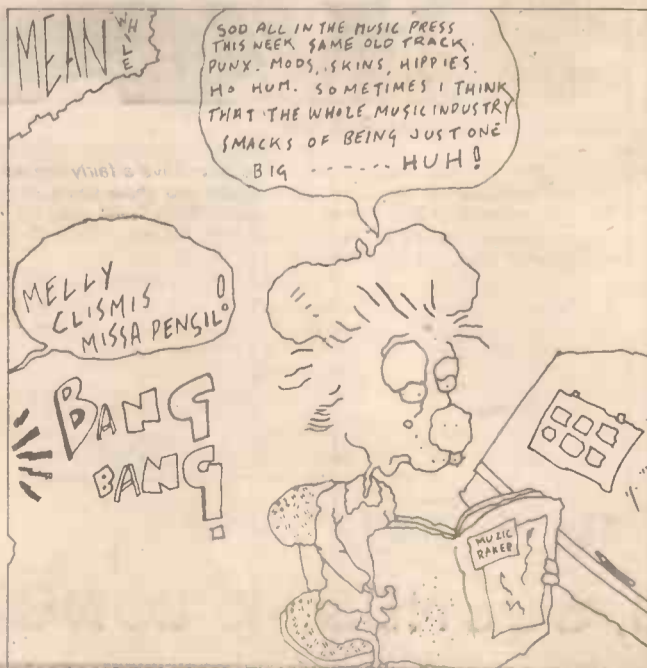 MEAN WHILE
SOD ALL IN THE MUSIC PRESS
THIS WEEK SAME OLD TRACK.
PUNX. MODS, SKINS, HIPPIES.
HO HUM. SOMETIMES I THINK
THAT THE WHOLE MUSIC INDUSTRY
SMACKS OF BEING JUST ONE
BIG ------- HUH!
MELLY
CLISMIS
MISSA PENSIL!
BANG
BANG!
MUZIC
RAKER